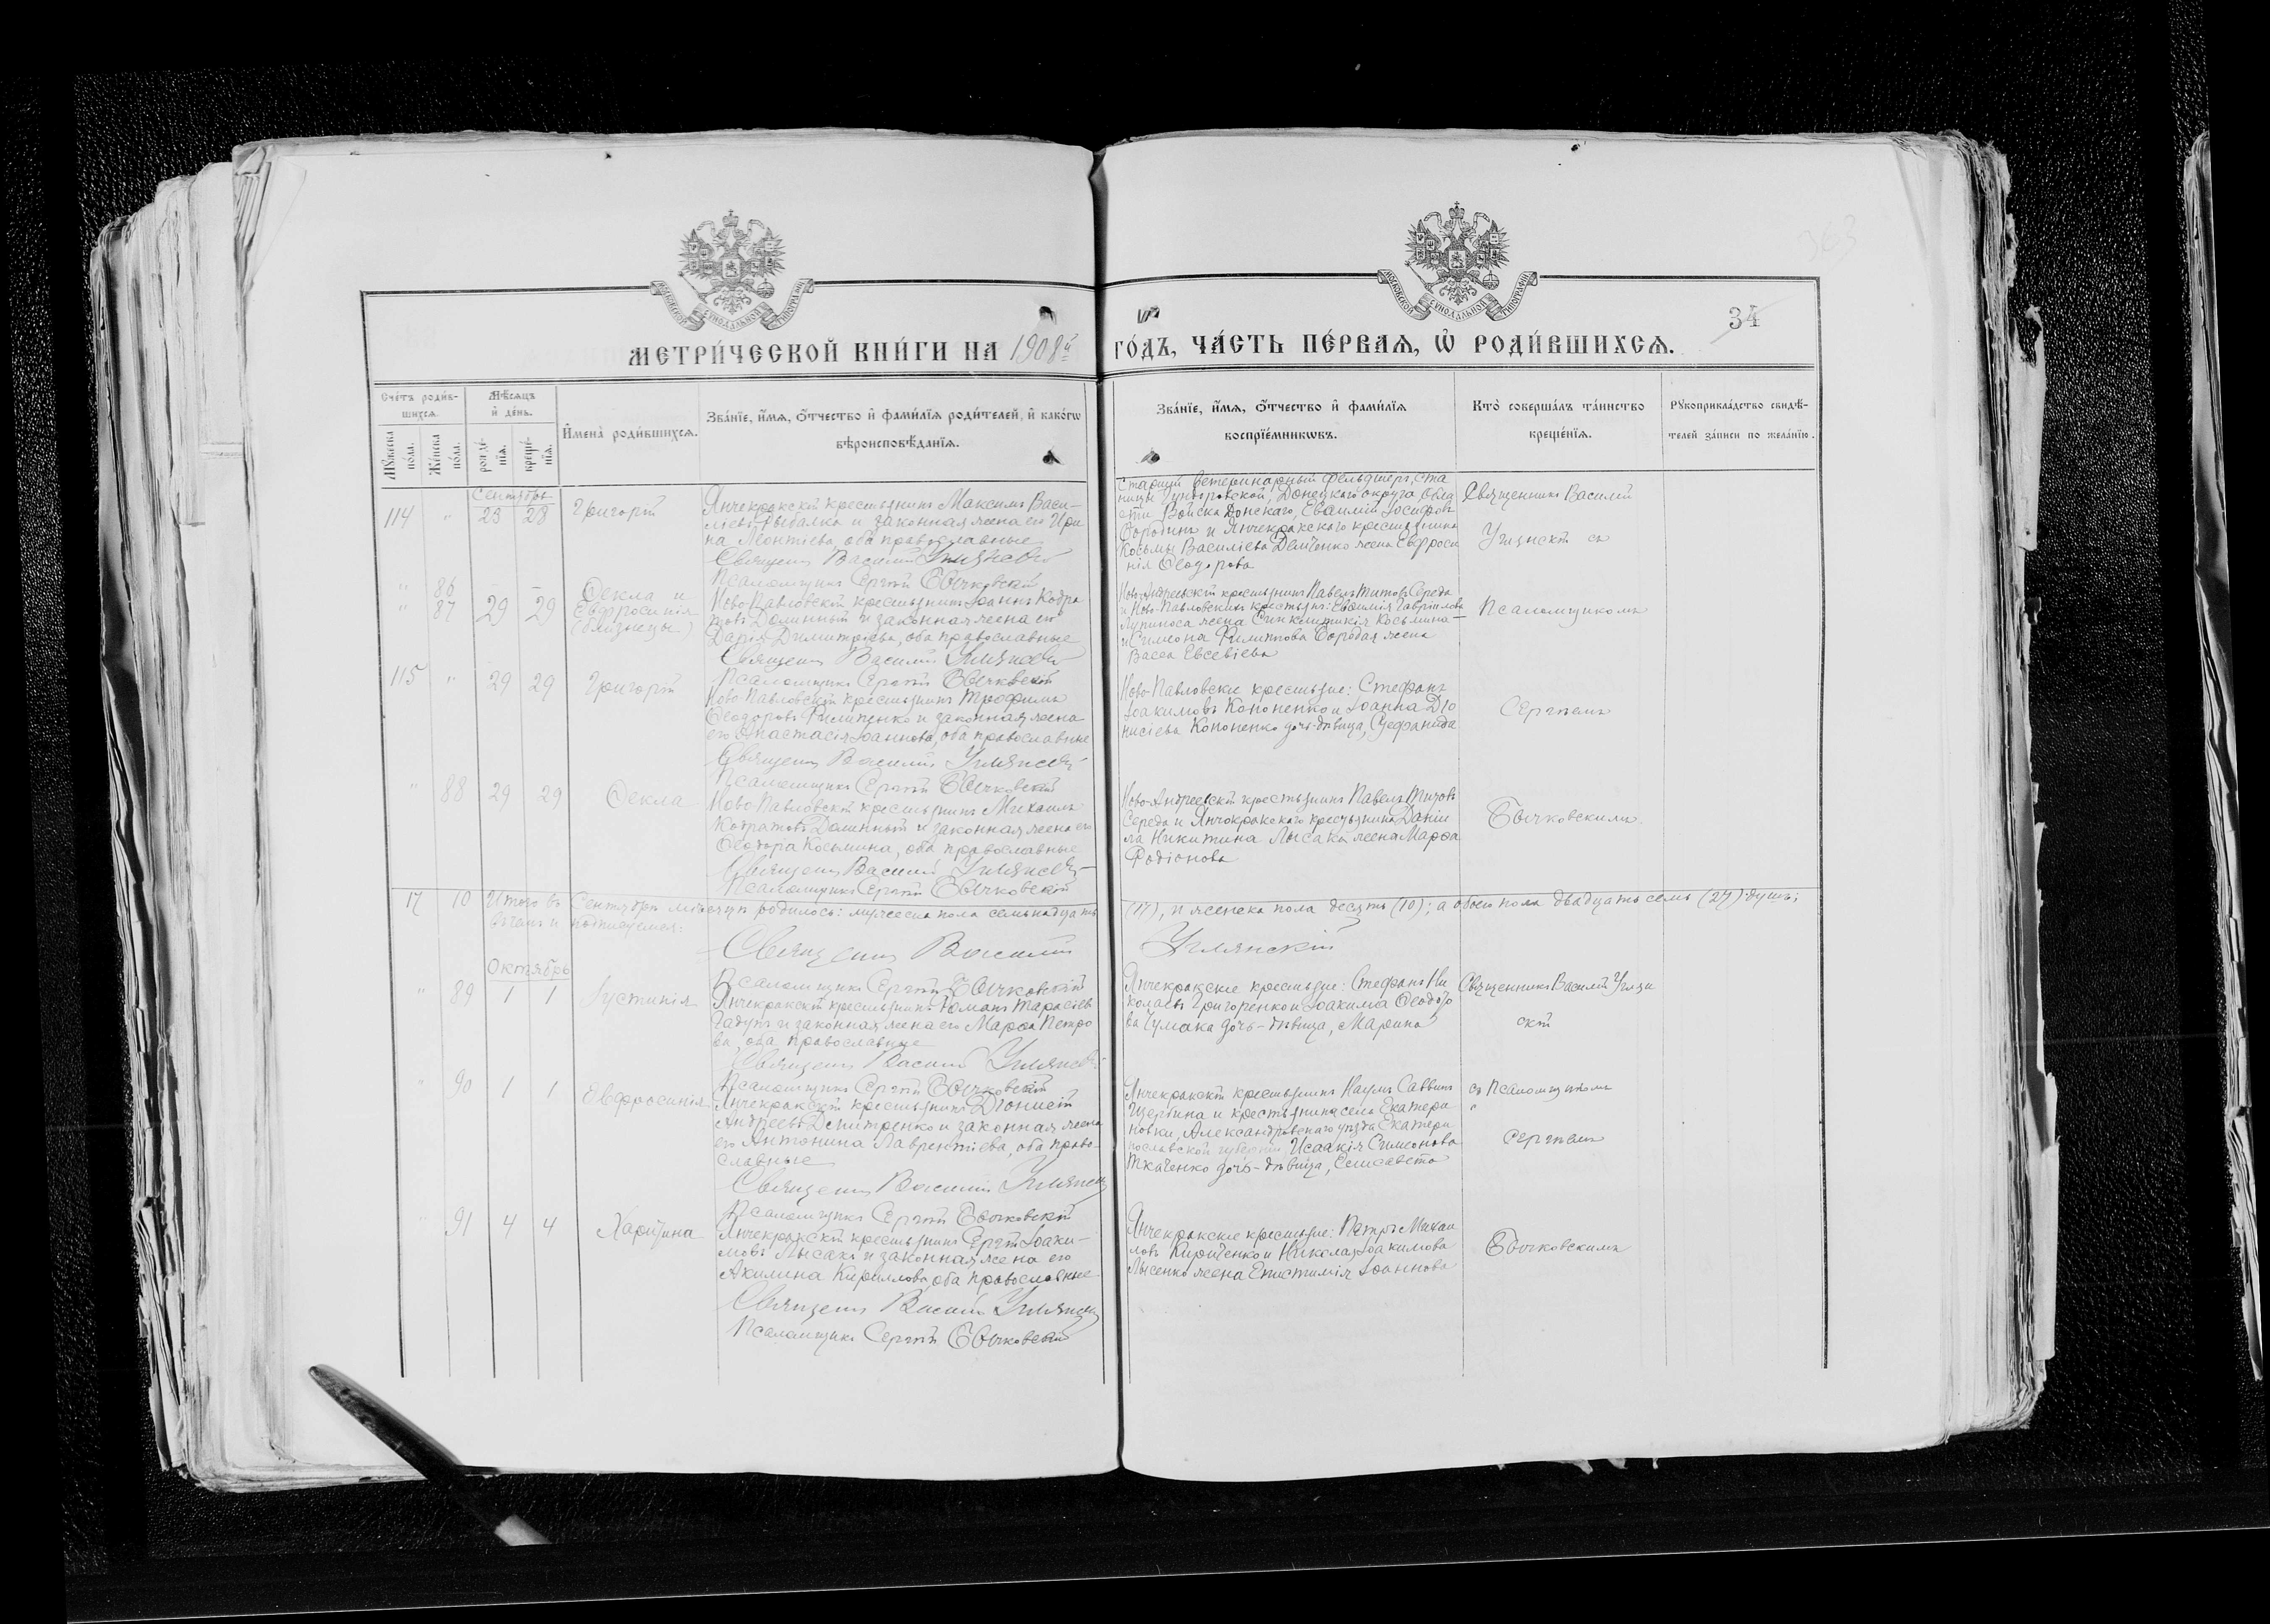 МОСКОВСКОЙ СУНОДАЛЬНОЙ ТИПОГРАФІИ
МОСКОВСКОЙ СУНОДАЛЬНОЙ ТИПОГРАФІИ
363
34
МЕТРИЧЕСКОЙ КНИГИ НА 1908й ГОДЪ, ЧАСТЬ ПЕРВАЯ, Ѡ РОДИВШИХСЯ.
Счетъ родив-
шихся.
Мужеска пола.
Женска пола.
Мѣсяцъ
и день.
рожденія.
крещенія.
Имена родившихся.
Званіе, имя, отчество и фамилія родителей, и какогѡ
вѣроисповѣданія.
Званіе, имя, отчество и фамилія
воспріемникѡвъ.
Кто совершалъ таинство
крещенія.
Рукоприкладство свидѣ-
телей записи по желанію.
Сентябрь
114 " 23 28 Григорій
Янчекракскій крестьянинъ Максимъ Васи-
ліевъ Рыбалка и законная жена его Ири
на Леонтіева, оба православные
Священ. Василій Углянскій
Псаломщикъ Сергѣй Бычковскій
Старшій ветеринарный фельдшеръ, ста
ницы Гундоровской, Донецкаго округа, Обла
сти Войска Донскаго, Евѳимій Іосифовъ
Бородинъ и Янчекракскаго крестьянина
Косьмы Василіева Демченко жена Евфроси
нія Ѳеодорова
Священникъ Василій
Углянскій съ
" 86
" 87 29 29
Ѳекла и
Евфросинія
(близнецы)
Ново-Павловскій крестьянинъ Іоаннъ Кодра
товъ Долинный и законная жена его
Дарія Димитріева, оба православные
Священ. Василій Углянскій
Псаломщикъ Сергѣй Бычковскій
Ново-Андреевскій крестьянинъ Павелъ Титовъ Середа
и Ново-Павловскихъ крестьянъ: Евѳимія Гавріилова
Лупиноса жена Синклитикія Косьмина
и Симеона Филиппова Бородая жена
Васса Евсевіева
Псаломщикомъ
115 " 29 29 Григорій
Ново-Павловскій крестьянинъ Трофимъ
Ѳеодоровъ Филипенко и законная жена
его Анастасія Іоаннова, оба православные
Священ. Василій Углянскій
Псаломщикъ Сергѣй Бычковскій
Ново-Павловскіе крестьяне: Стефанъ
Іоакимовъ Кононенко и Іоанна Діо
нисіева Кононенко дочь-дѣвица, Стефанида
Сергѣемъ
" 88 29 29 Ѳекла
Ново-Павловскій крестьянинъ Михаилъ
Кодратовъ Долинный и законная жена его
Ѳеодора Косьмина, оба православные
Священ. Василій Углянскій
Псаломщикъ Сергѣй Бычковскій
Ново-Андреевскій крестьянинъ Павелъ Титовъ
Середа и Янчокракскаго крестьянина Даніи
ла Никитина Лысака жена Марѳа
Родіонова
Бычковскимъ
17 10 Итого въ Сентябрѣ мѣсяцѣ родилось: мужеска пола семьнадцать (17), и женска пола десять (10); а обоего пола двадцать семь (27) душъ;
въ чемъ и подписуемся:
Священ. Василій Углянскій
Псаломщикъ Сергѣй Бычковскій
Октябрь
" 89 1 1 Іустинія
Янчекракскій крестьянинъ Романъ Тарасіевъ
и законная жена его Марѳа Петро
ва, оба православные
Священ. Василій Углянскій
Псаломщикъ Сергѣй Бычковскій
Янчекракскіе крестьяне: Стефанъ Ни
колаевъ Григоренко и Іоакима Ѳеодоро
ва Чумака дочь-дѣвица, Марина
Священникъ Василій Углян
скій
" 90 1 1 Евфросинія
Янчекракскій крестьянинъ Діонисій
Андреевъ Демитренко и законная жена
его Антонина Лаврентіева, оба право-
славные
Священ. Василій Углянскій
Псаломщикъ Сергѣй Бычковскій
Янчекракскій крестьянинъ Наумъ Саввинъ
Щербина и крестьянина села Екатери
новки, Александровскаго уѣзда Екатери
нославской губерніи, Исаакія Симеонова
Ткаченко дочь-дѣвица, Елисавета
съ Псаломщикомъ
"
Сергѣемъ
" 91 4 4 Харитина
Янчекракскій крестьянинъ Сергѣй Іоаки-
мовъ Лысакъ и законная жена его
Акилина Кириллова, оба православные
Священ. Василій Углянскій
Псаломщикъ Сергѣй Бычковскій
Янчекракскіе крестьяне: Петръ Михаи
ловъ Кириченко и Николая Іоакимова
Лысенко жена Епистимія Іоаннова
Бычковскимъ